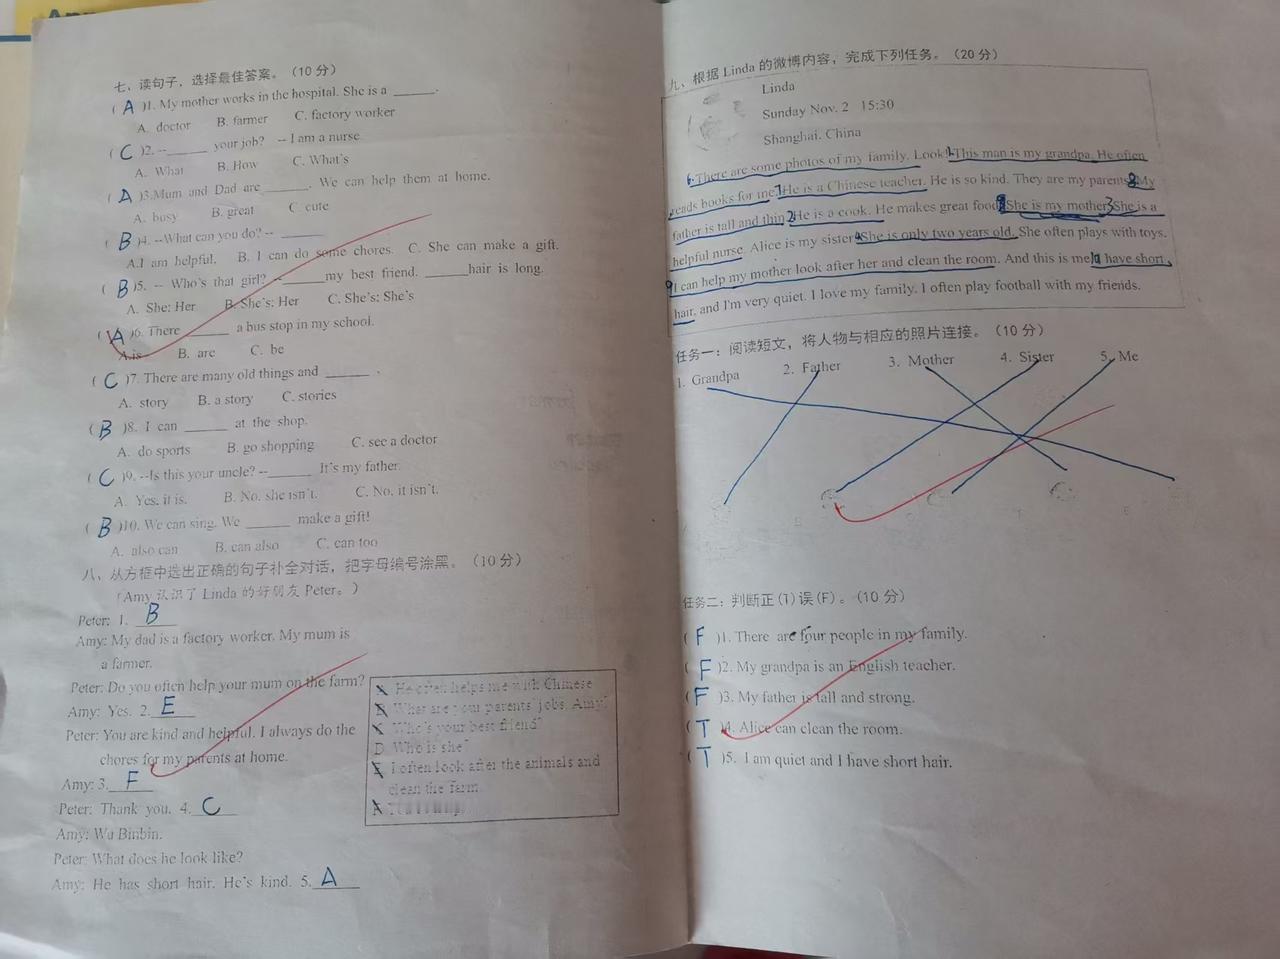 七、读句子，选择最佳答案。（10 分）
( A )1. My mother works in the hospital. She is a ______.
A. doctor B. farmer C. factory worker
( C )2. --______ your job? -- I am a nurse
A. What B. How C. What's
( A )3.Mum and Dad are ______. We can help them at home.
A. busy B. great C. cute
( B )4. --What can you do? -- ______
A.I am helpful. B. I can do some chores. C. She can make a gift.
( B )5. -- Who's that girl? --______my best friend. ______hair is long.
A. She; Her B. She's; Her C. She's; She's
( A )6. There ______ a bus stop in my school.
A.is B. are C. be
( C )7. There are many old things and ______ .
A. story B. a story C. stories
( B )8. I can ______ at the shop.
A. do sports B. go shopping C. see a doctor
( C )9. --Is this your uncle? --______ It's my father.
A. Yes, it is. B. No, she isn't. C. No, it isn't.
( B )10. We can sing. We ______ make a gift!
A. also can B. can also C. can too
八、从方框中选出正确的句子补全对话，把字母编号涂黑。（10 分）
（Amy 认识了 Linda 的好朋友 Peter。）
Peter: 1. B
Amy: My dad is a factory worker. My mum is
a farmer.
Peter: Do you often help your mum on the farm?
Amy: Yes. 2. E
Peter: You are kind and helpful. I always do the
chores for my parents at home.
Amy: 3. F
Peter: Thank you. 4. C
Amy: Wu Binbin.
Peter: What does he look like?
Amy: He has short hair. He's kind. 5. A
A. He often helps me with Chinese
B. What are your parents' jobs, Amy?
C. Who's your best friend?
D. Who is she?
E. I often look after the animals and
clean the farm.
九、根据 Linda 的微博内容，完成下列任务。（20 分）
Linda
Sunday Nov. 2 15:30
Shanghai, China
6. There are some photos of my family. Look! 1 This man is my grandpa. He often
reads books for me. 7 He is a Chinese teacher. He is so kind. They are my parents. 8 My
father is tall and thin. 2 He is a cook. He makes great food. She is my mother. 3 She is a
helpful nurse. Alice is my sister. 4 She is only two years old. She often plays with toys.
9 I can help my mother look after her and clean the room. And this is me. 10 I have short
hair, and I'm very quiet. I love my family. I often play football with my friends.
任务一：阅读短文，将人物与相应的照片连接。（10 分）
1. Grandpa 2. Father 3. Mother 4. Sister 5. Me
任务二：判断正(T)误(F)。（10 分）
( F )1. There are four people in my family.
( F )2. My grandpa is an English teacher.
( F )3. My father is tall and strong.
( T )4. Alice can clean the room.
( T )5. I am quiet and I have short hair.